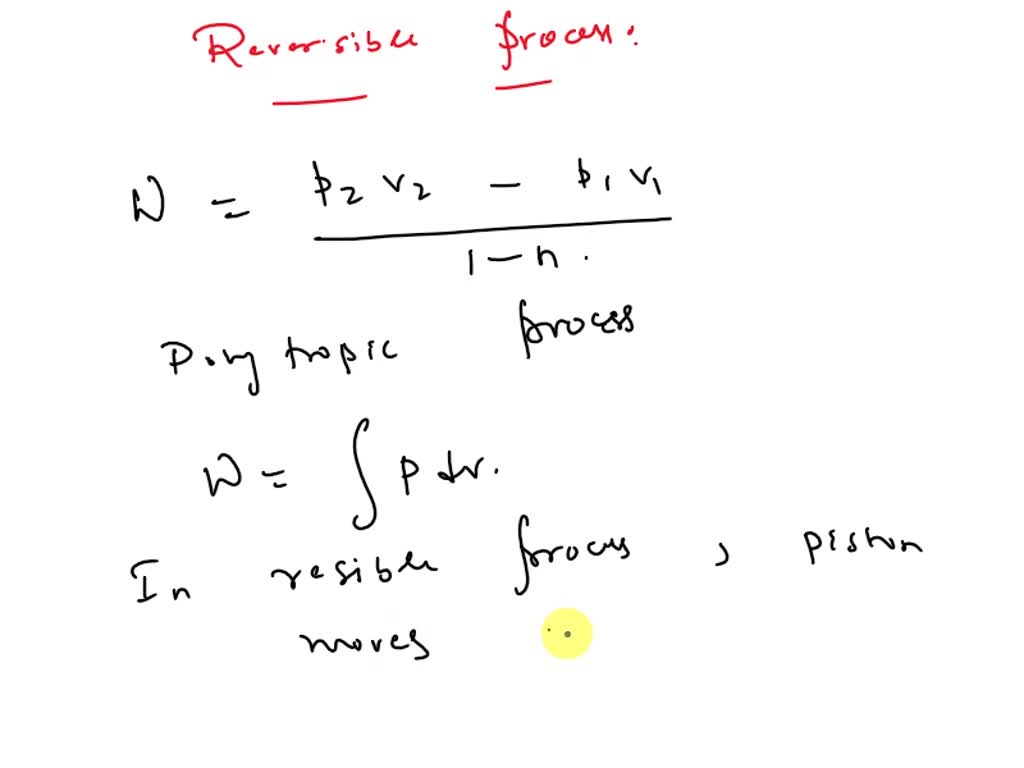 Reversible process:
W = p2 v2 - p1 v1
1-n.
Polytropic process
W = ∫ p dv.
In resible process, piston
moves